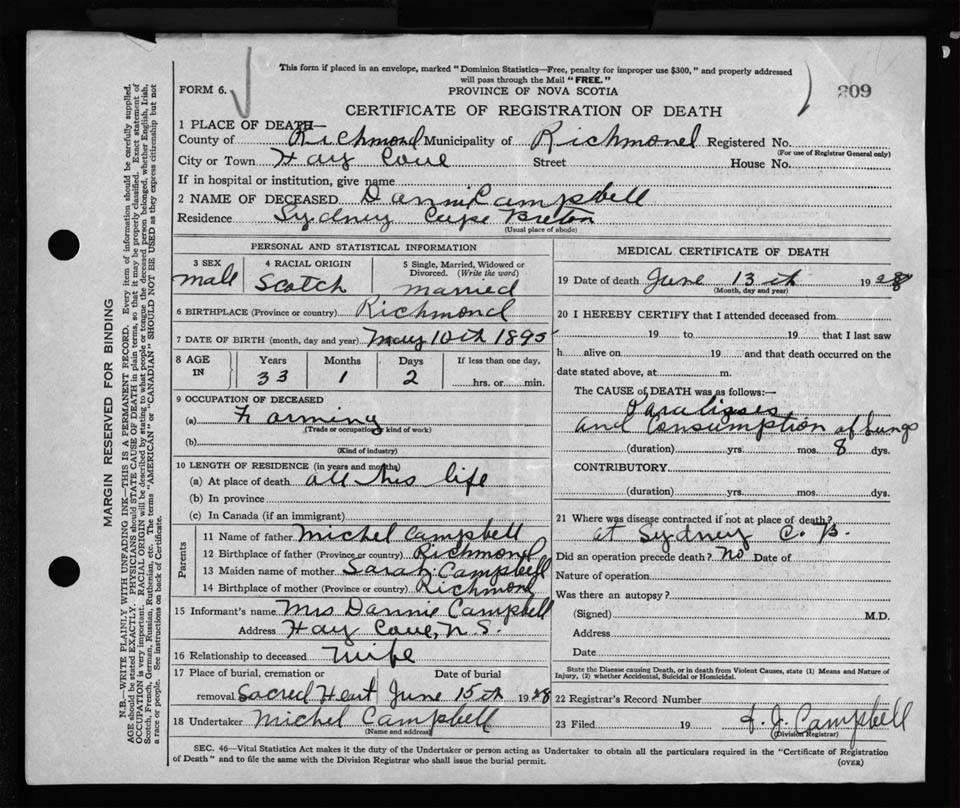 This form if placed in an envelope, marked "Dominion Statistics—Free, penalty for improper use $300," and properly addressed
will pass through the Mail "FREE."
FORM 6.
PROVINCE OF NOVA SCOTIA
209
CERTIFICATE OF REGISTRATION OF DEATH
1 PLACE OF DEATH—
County of Richmond Municipality of Richmond Registered No.
(For use of Registrar General only)
City or Town Hay Cove Street House No.
If in hospital or institution, give name
2 NAME OF DECEASED Danni Campbell
Residence Sydney Cape Breton
(Usual place of abode)
PERSONAL AND STATISTICAL INFORMATION
3 SEX 4 RACIAL ORIGIN 5 Single, Married, Widowed or
Divorced. (Write the word)
Mall Scotch Married
6 BIRTHPLACE (Province or country) Richmond
7 DATE OF BIRTH (month, day and year) May 10th 1895
8 AGE IN Years Months Days If less than one day,
33 1 2 hrs. or min.
9 OCCUPATION OF DECEASED
(a) Farming
(Trade or occupation or kind of work)
(b)
(Kind of industry)
10 LENGTH OF RESIDENCE (in years and months)
(a) At place of death all his life
(b) In province
(c) In Canada (if an immigrant)
Parents
11 Name of father Michel Campbell
12 Birthplace of father (Province or country) Richmond
13 Maiden name of mother Sarah Campbell
14 Birthplace of mother (Province or country) Richmond
15 Informant's name Mrs Dannie Campbell
Address Hay Cove, N.S.
16 Relationship to deceased Wife
17 Place of burial, cremation or Date of burial
removal Sacred Heart June 15th 1928
18 Undertaker Michel Campbell
(Name and address)
MEDICAL CERTIFICATE OF DEATH
19 Date of death June 13th 1928
(Month, day and year)
20 I HEREBY CERTIFY that I attended deceased from
19 to 19 that I last saw
h alive on 19 and that death occurred on the
date stated above, at m.
The CAUSE of DEATH was as follows:
Paralizses
and Consumption of Lungs
(duration) yrs. mos. 8 dys.
CONTRIBUTORY
(duration) yrs. mos. dys.
21 Where was disease contracted if not at place of death?
at Sydney C. B.
Did an operation precede death? No Date of
Nature of operation
Was there an autopsy?
(Signed) M.D.
Address
Date
State the Disease causing Death, or in death from Violent Causes, state (1) Means and Nature of
Injury, (2) whether Accidental, Suicidal or Homicidal.
22 Registrar's Record Number
23 Filed 19 J. Campbell
(Division Registrar)
SEC. 46—Vital Statistics Act makes it the duty of the Undertaker or person acting as Undertaker to obtain all the particulars required in the "Certificate of Registration
of Death" and to file the same with the Division Registrar who shall issue the burial permit.
(OVER)
MARGIN RESERVED FOR BINDING
N.B.—WRITE PLAINLY WITH UNFADING INK—THIS IS A PERMANENT RECORD. Every item of information should be carefully supplied.
AGE should be stated EXACTLY. PHYSICIANS should STATE CAUSE OF DEATH in plain terms, so that it may be properly classified. Exact statement of
OCCUPATION is very important. RACIAL ORIGIN will be described by stating to what people or tongue the deceased person belonged, whether English, Irish,
Scotch, French, German, Russian, Ruthenian, etc. The terms "AMERICAN" or "CANADIAN" SHOULD NOT BE USED as they express citizenship but not
a race or people. See instructions on back of Certificate.